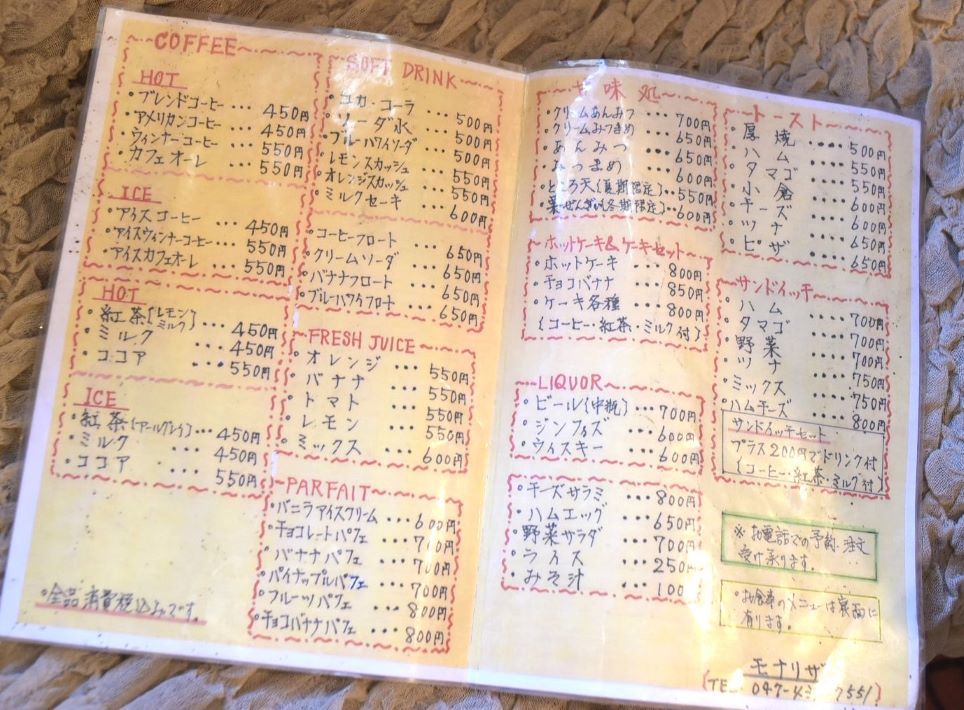 COFFEE
HOT
・ブレンドコーヒー … 450円
・アメリカンコーヒー … 450円
・ウィンナーコーヒー … 550円
・カフェオーレ … 550円
ICE
・アイスコーヒー … 450円
・アイスウィンナーコーヒー … 550円
・アイスカフェオーレ … 550円
HOT
・紅茶(レモン ミルク) … 450円
・ミルク … 450円
・ココア … 550円
ICE
・紅茶(アールグレイ) … 450円
・ミルク … 450円
・ココア … 550円
・全品消費税込みです。
SOFT DRINK
・コカ・コーラ … 500円
・ソーダ水 … 500円
・ブルーハワイソーダ … 500円
・レモンスカッシュ … 550円
・オレンジスカッシュ … 550円
・ミルクセーキ … 600円
・コーヒーフロート … 650円
・クリームソーダ … 650円
・バナナフロート … 650円
・ブルーハワイフロート … 650円
FRESH JUICE
・オレンジ … 550円
・バナナ … 550円
・トマト … 550円
・レモン … 550円
・ミックス … 600円
PARFAIT
・バニラアイスクリーム … 600円
・チョコレートパフェ … 700円
・バナナパフェ … 700円
・パイナップルパフェ … 700円
・フルーツパフェ … 800円
・チョコバナナパフェ … 800円
甘味処
・クリームあんみつ … 700円
・クリームみつまめ … 650円
・あんみつ … 650円
・みつまめ … 600円
・ところ天(夏期限定) … 550円
・栗ぜんざい(冬期限定) … 600円
ホットケーキ&ケーキセット
・ホットケーキ … 800円
・チョコバナナ … 850円
・ケーキ各種 … 800円
(コーヒー・紅茶・ミルク付)
LIQUOR
・ビール(中瓶) … 700円
・ジンフィズ … 600円
・ウィスキー … 600円
・チーズサラミ … 800円
・ハムエッグ … 650円
・野菜サラダ … 700円
・ライス … 250円
・みそ汁 … 100円
トースト
・厚焼 … 500円
・ハム … 550円
・タマゴ … 550円
・小倉 … 550円
・チーズ … 600円
・ツナ … 650円
・ピザ … 650円
サンドイッチ
・ハム … 700円
・タマゴ … 700円
・野菜 … 700円
・ツナ … 750円
・ミックス … 750円
・ハムチーズ … 800円
サンドイッチセット
プラス200円でドリンク付
(コーヒー・紅茶・ミルク付)
※お電話での予約・注文
受け承ります。
・お食事のメニューは裏面に
有ります。
モナリザ
(TEL. 047-4 7551)